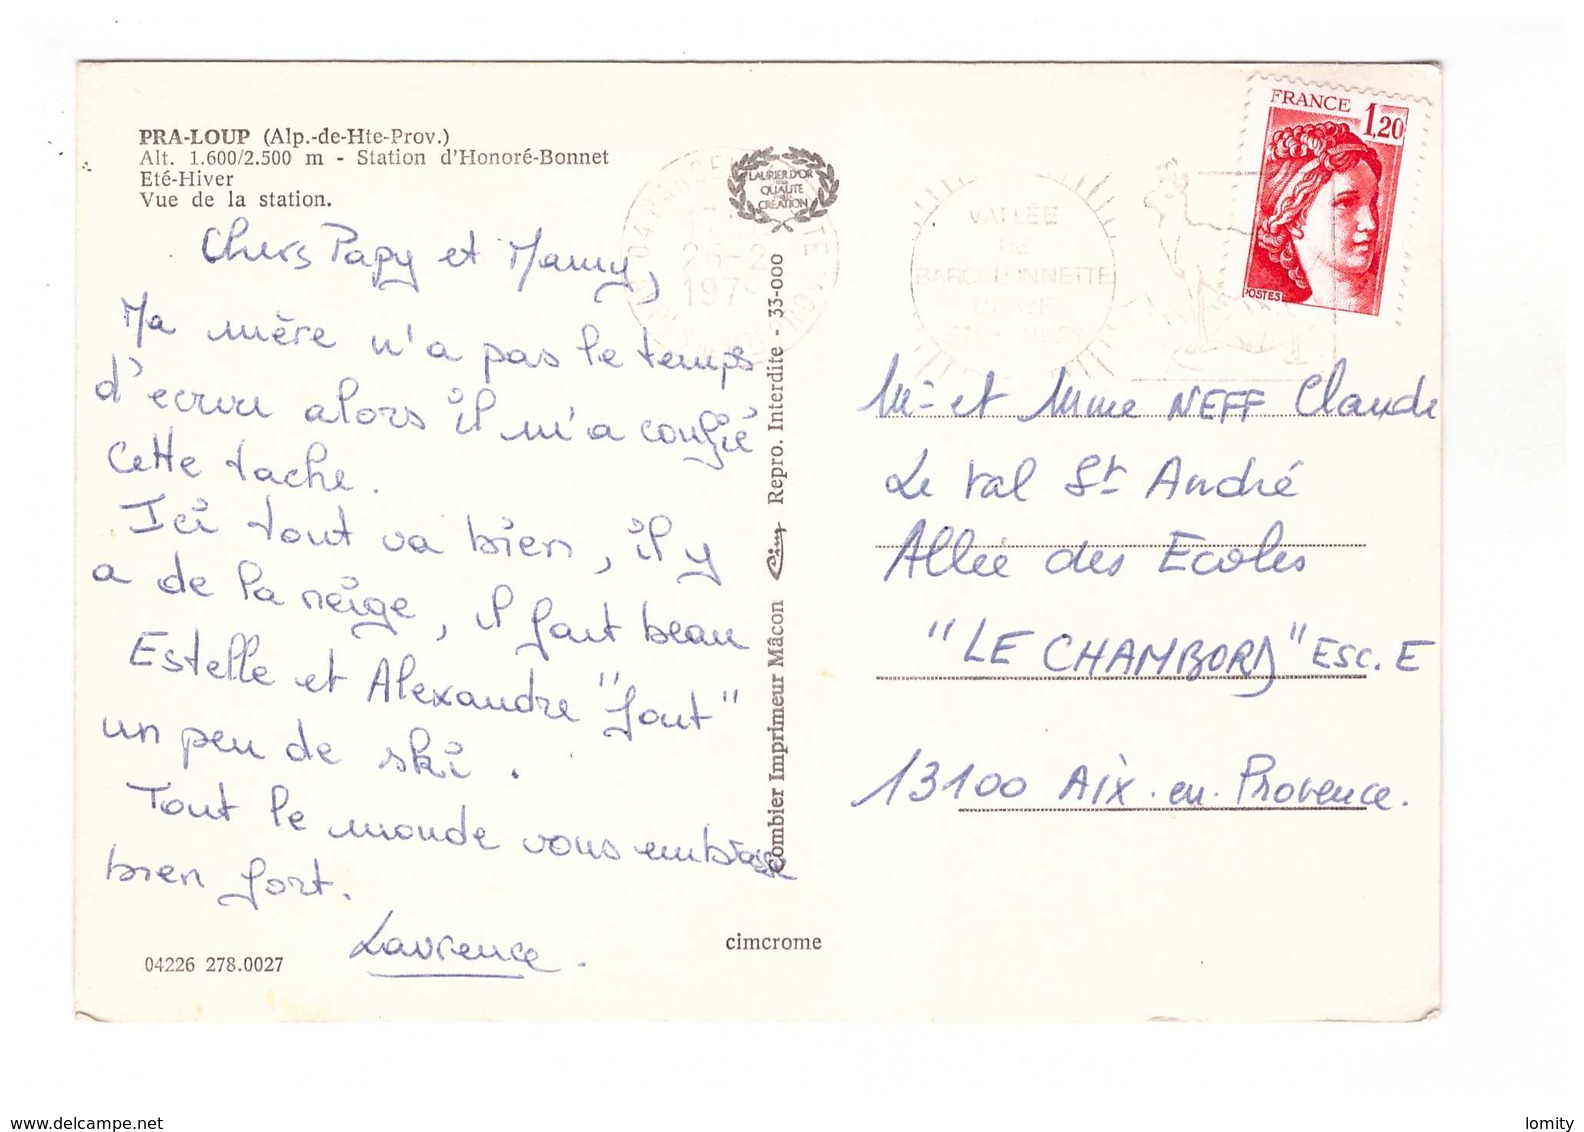 PRA-LOUP (Alp.-de-Hte-Prov.)
Alt. 1.600/2.500 m - Station d'Honoré-Bonnet
Eté-Hiver
Vue de la station.
Chers Papy et Mamy,
Ma mère n'a pas le temps
d'ecrire alors il m'a confié
cette tache.
Ici tout va bien, il y
a de la neige, il fait beau
Estelle et Alexandre "font"
un peu de ski.
Tout le monde vous embrasse
bien fort.
Laurence.
04226 278.0027
cimcrome
Combier Imprimeur Mâcon Cim Repro. Interdite - 33-000
LAURIER D'OR
QUALITE
CREATION
25-2
197
VALLÉE
DE
BARCELONNETTE
FRANCE 1,20
POSTES
Mr et Mme NEFF Claude
Le Val St André
Allée des Ecoles
"LE CHAMBORD" ESC. E
13100 AIX-en-Provence.
www.delcampe.net
lomity